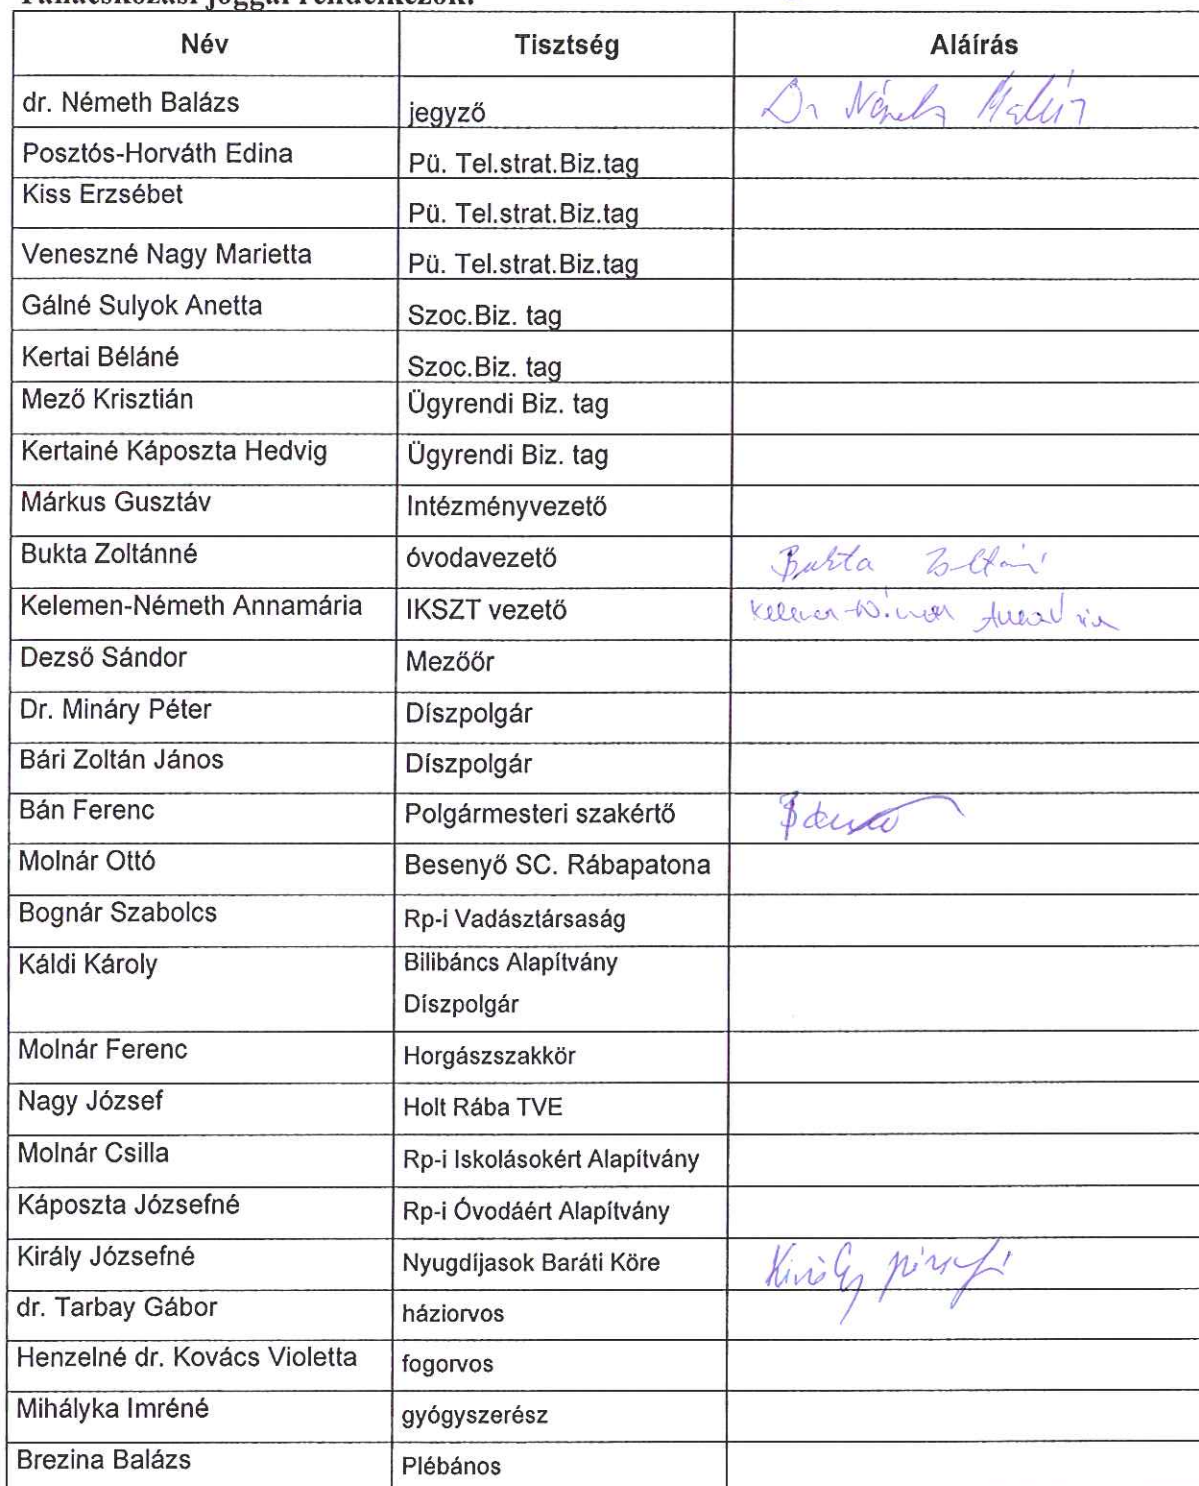 Tanácskozási joggal rendelkezők:
Név Tisztség Aláírás
dr. Németh Balázs jegyző Dr Németh Balázs
Posztós-Horváth Edina Pü. Tel.strat.Biz.tag
Kiss Erzsébet Pü. Tel.strat.Biz.tag
Veneszné Nagy Marietta Pü. Tel.strat.Biz.tag
Gálné Sulyok Anetta Szoc.Biz. tag
Kertai Béláné Szoc.Biz. tag
Mező Krisztián Ügyrendi Biz. tag
Kertainé Káposzta Hedvig Ügyrendi Biz. tag
Márkus Gusztáv Intézményvezető
Bukta Zoltánné óvodavezető Bukta Zoltánné
Kelemen-Németh Annamária IKSZT vezető Kelemen-Németh Annamária
Dezső Sándor Mezőőr
Dr. Mináry Péter Díszpolgár
Bári Zoltán János Díszpolgár
Bán Ferenc Polgármesteri szakértő
Molnár Ottó Besenyő SC. Rábapatona
Bognár Szabolcs Rp-i Vadásztársaság
Káldi Károly Bilibáncs Alapítvány
Díszpolgár
Molnár Ferenc Horgászszakkör
Nagy József Holt Rába TVE
Molnár Csilla Rp-i Iskolásokért Alapítvány
Káposzta Józsefné Rp-i Óvodáért Alapítvány
Király Józsefné Nyugdíjasok Baráti Köre Király Józsefné
dr. Tarbay Gábor háziorvos
Henzelné dr. Kovács Violetta fogorvos
Mihályka Imréné gyógyszerész
Brezina Balázs Plébános